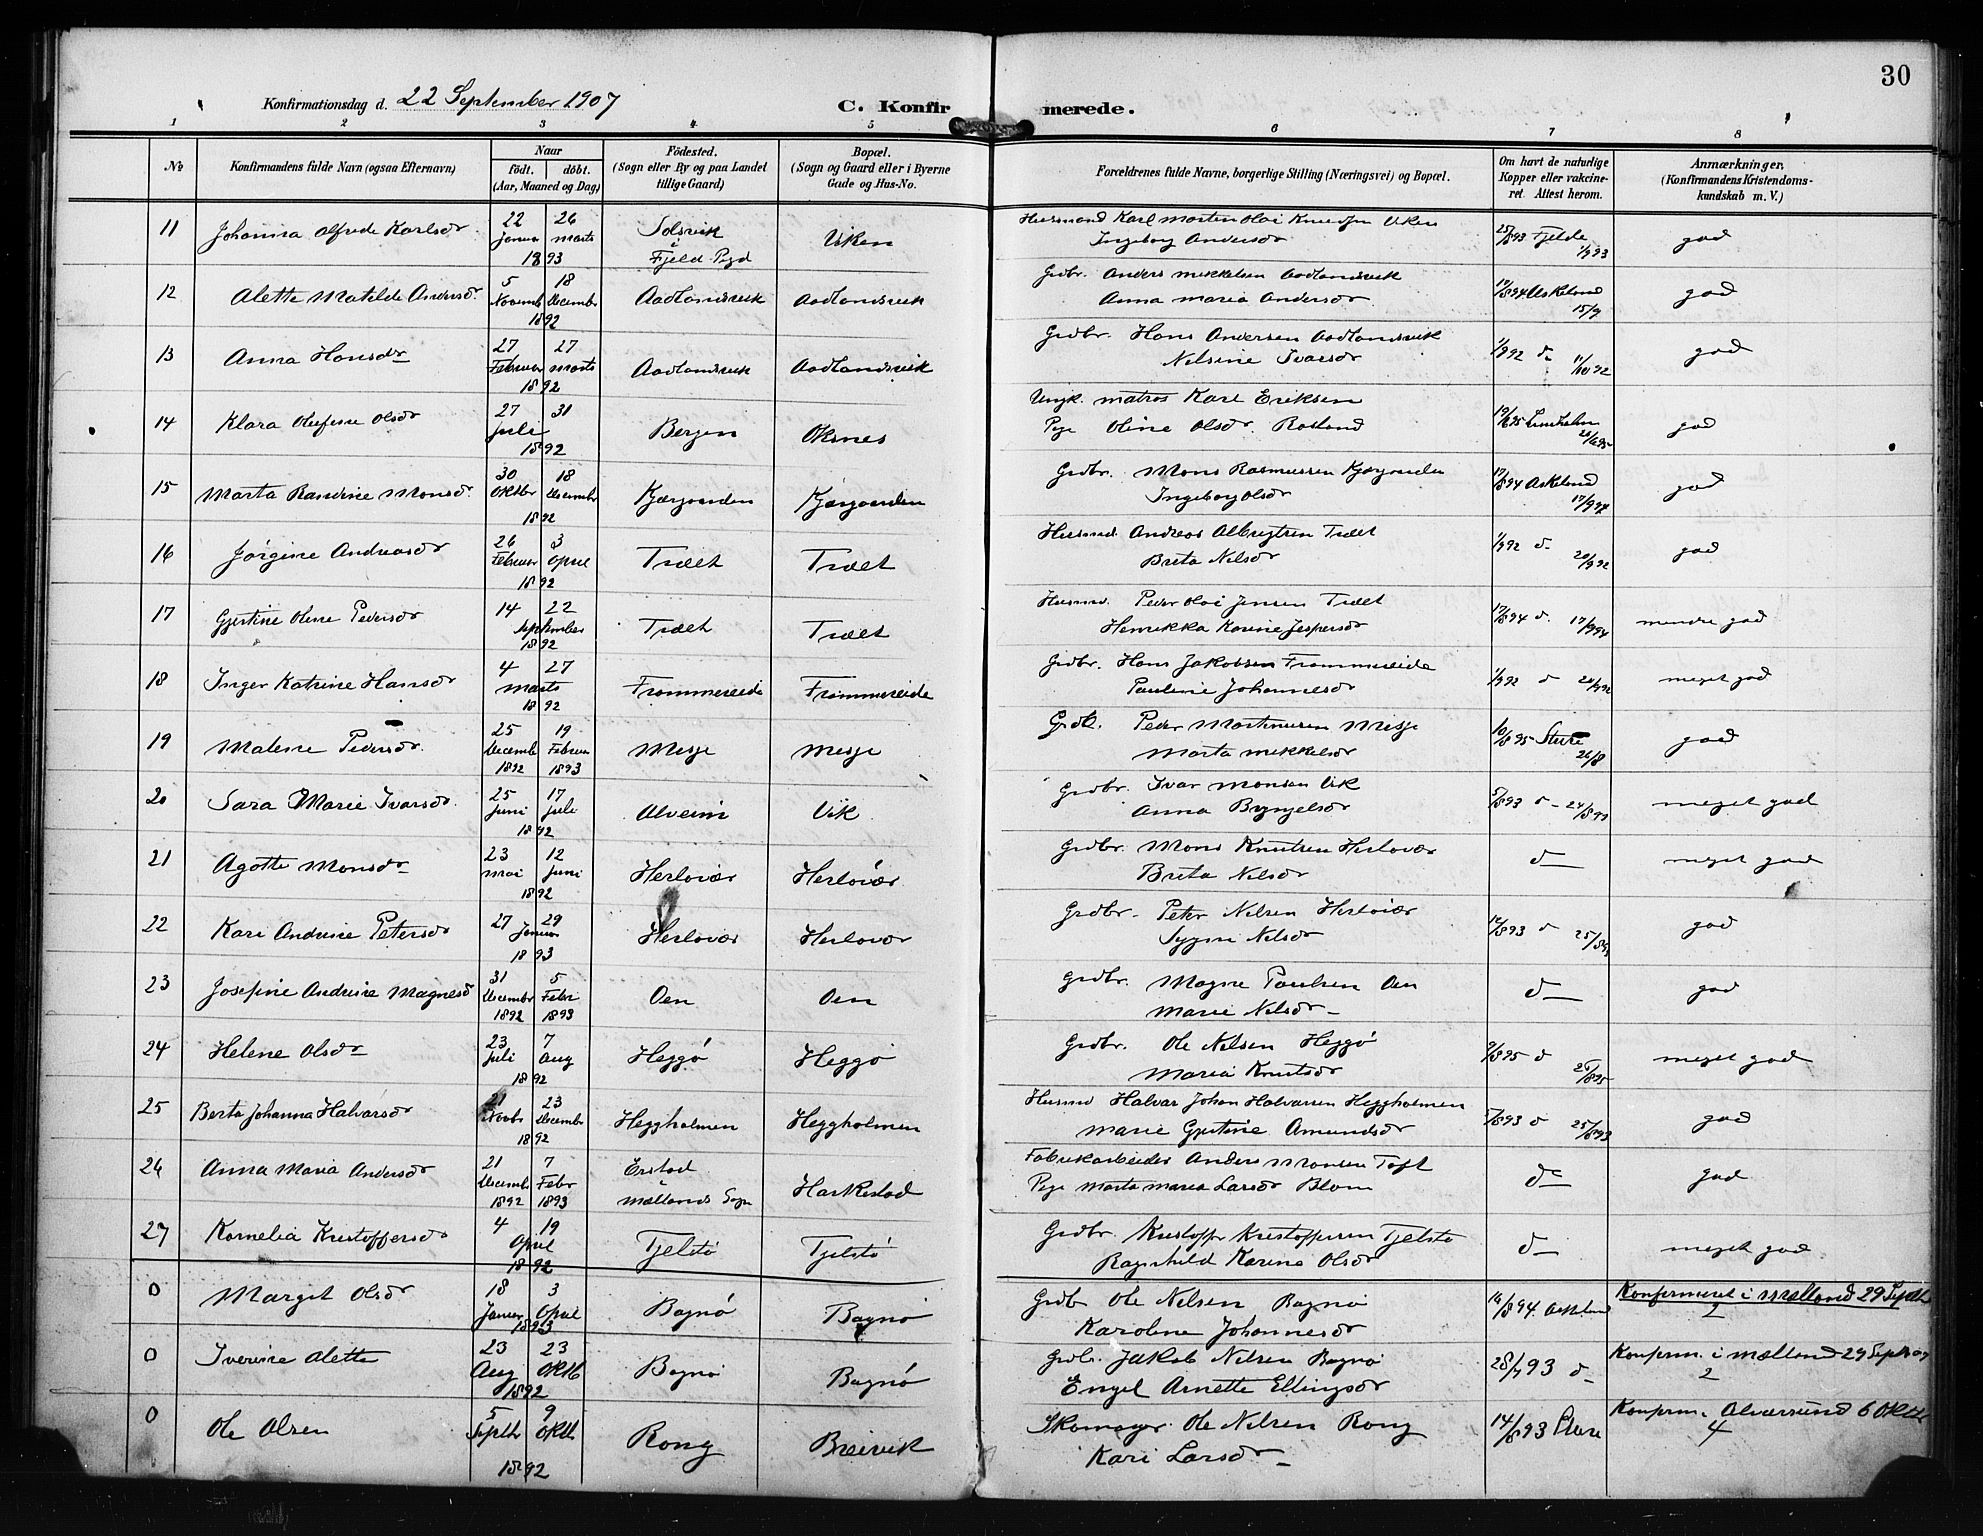 30
Konfirmationsdag d. 22 September 1907
C. Konfirmerede.
1 2 3 4 5 6 7 8
No
Konfirmandens fulde Navn (ogsaa Efternavn)
Naar
født. døbt.
(Aar, Maaned og Dag)
Fødested.
(Sogn eller By og paa Landet
tillige Gaard)
Bopæl.
(Sogn og Gaard eller i Byerne
Gade og Hus-No.
Forældrenes fulde Navne, borgerlige Stilling (Næringsvei) og Bopæl.
Om havt de naturlige
Kopper eller vakcine-
ret. Attest herom.
Anmærkninger.
(Konfirmandens Kristendoms-
kundskab m. V.)
11 Johanna Alfrede Karlsdr 22 Januar 26 Marts 1893 Solsvik i Fjeld Pgd Viken
Husmand Karl Morten Olai Knudsen Viken
Ingeborg Andersdr
25/8 93 Fjelde 1/9 93 god
12 Alette Matilde Andersdr 5 Novemb 18 Decembr 1892 Aadlandsvik Aadlandsvik
Grdbr. Anders Mikkelsen Aadlandsvik
Anna Maria Andersdr
17/8 94 Askeland 15/9 god
13 Anna Hansdr 27 Februar 27 Marts 1892 Aadlandsvik Aadlandsvik
Grdbr. Hans Andersen Aadlandsvik
Nelsine Ivarsdr
1/9 92 d 11/10 92 god
14 Klara Olufine Olsdr 27 31 Juli 1892 Bergen Oksnes
Ungk. matros Karl Eriksen
Pge Oline Olsdr. Rosland
god
15 Marta Rasmine Monsdr 30 Oktbr 18 Decembr 1892 Kjærgaarden Kjærgaarden
Grdbr. Mons Rasmussen Kjærgaarden
Ingeborg Olsdr
17/8 94 Askeland 17/9 94 god
16 Jørgine Andreasdr 26 Februar 3 April 1892 Træet Træet
Husmd. Andreas Albrigtsen Træet
Brita Nilsdr
1/9 92 d. 20/9 92 god
17 Gjertine Oline Pedersdr 14 22 September 1892 Træet Træet
Husmd. Peder Olai Jensen Træet
Henrikka Karine Jespersdr
17/8 94 d. 17/9 94 mindre god
18 Inger Katrine Hansdr 4 27 Marts 1892 Frommereide Frommereide
Grdbr. Hans Jakobsen Frommereide
Pauline Johannesdr
1/9 92 d 20/9 92 meget god
19 Malene Pedersdr. 25 Decemb 1892 19 Februar 1893 Misje Misje
Grdb. Peder Martinusen Misje
Marta Mikkelsdr
10/8 95 Sture 26/8 god
20 Sara Marie Ivarsdr. 25 Juni 17 Juli 1892 Alveim Vik
Grdbr. Ivar Monsen Vik
Anna Brynjelsdr
5/8 93 d 24/8 93 meget god
21 Agotte Monsdr 23 Mai 12 Juni 1892 Herløvær Herløvær
Grdbr. Mons Knutsen Herløvær
Brita Nilsdr
d meget god
22 Kari Andrine Petersdr 27 29 Januar 1893 Herløvær Herløvær
Grdbr. Peter Nilsen Herløvær
Sygni Nilsdr
12/8 93 d 25/8 93 god
23 Josefine Andrine Magnesdr 31 Decembr 1892 5 Febr 1893 Oen Oen
Grdbr. Magne Paulsen Oen
Marie Nilsdr
d god
24 Helene Olsdr 23 Juli 7 Aug 1892 Heggø Heggø
Grdbr. Ole Nilsen Heggø
Maria Knutsdr
9/8 95 d 25/8 95 meget god
25 Berta Johanna Halvorsdr 21 Novbr 23 Decembr 1892 Heggholmen Heggholmen
Husmd Halvar Johan Halvarsen Heggholmen
Marie Gjertine Amundsdr
5/8 93 d 25/8 93 god
26 Anna Maria Andersdr 21 Decemb 1892 7 Febr 1893 Erstad i Mællands Sogn Harkestad
Fabrikarbeider Anders Monsen Toft
Pige Marta Maria Larsdr Blom
d god
27 Kornelia Kristoffersdr 4 19 April 1892 Tjelstø Tjelstø
Grdbr Kristoffer Kristoffersen Tjelstø
Ragnhild Karina Olsdr
d meget god
0 Margit Olsdr 18 Januar 3 April 1893 Bognø Bognø
Grdbr Ole Nilsen Bognø
Karoline Johannesdr
16/8 94 Askeland Konfirmeret i Mælland 29 Septbr
2
0 Iverine Alette 23 Aug 23 Oktb 1892 Bognø Bognø
Grdbr. Jakob Nilsen Bognø
Engel Arnette Ellingsdr
28/7 93 d Konfirm. i Mælland 29 Sept 07
2
0 Ole Olsen 5 Septbr 9 Oktbr 1892 Rong Breivik
Skomager Ole Nilsen Rong
Kari Larsdr
14/8 93 Sture Konfirm. i Alversund 6 Oktbr
4